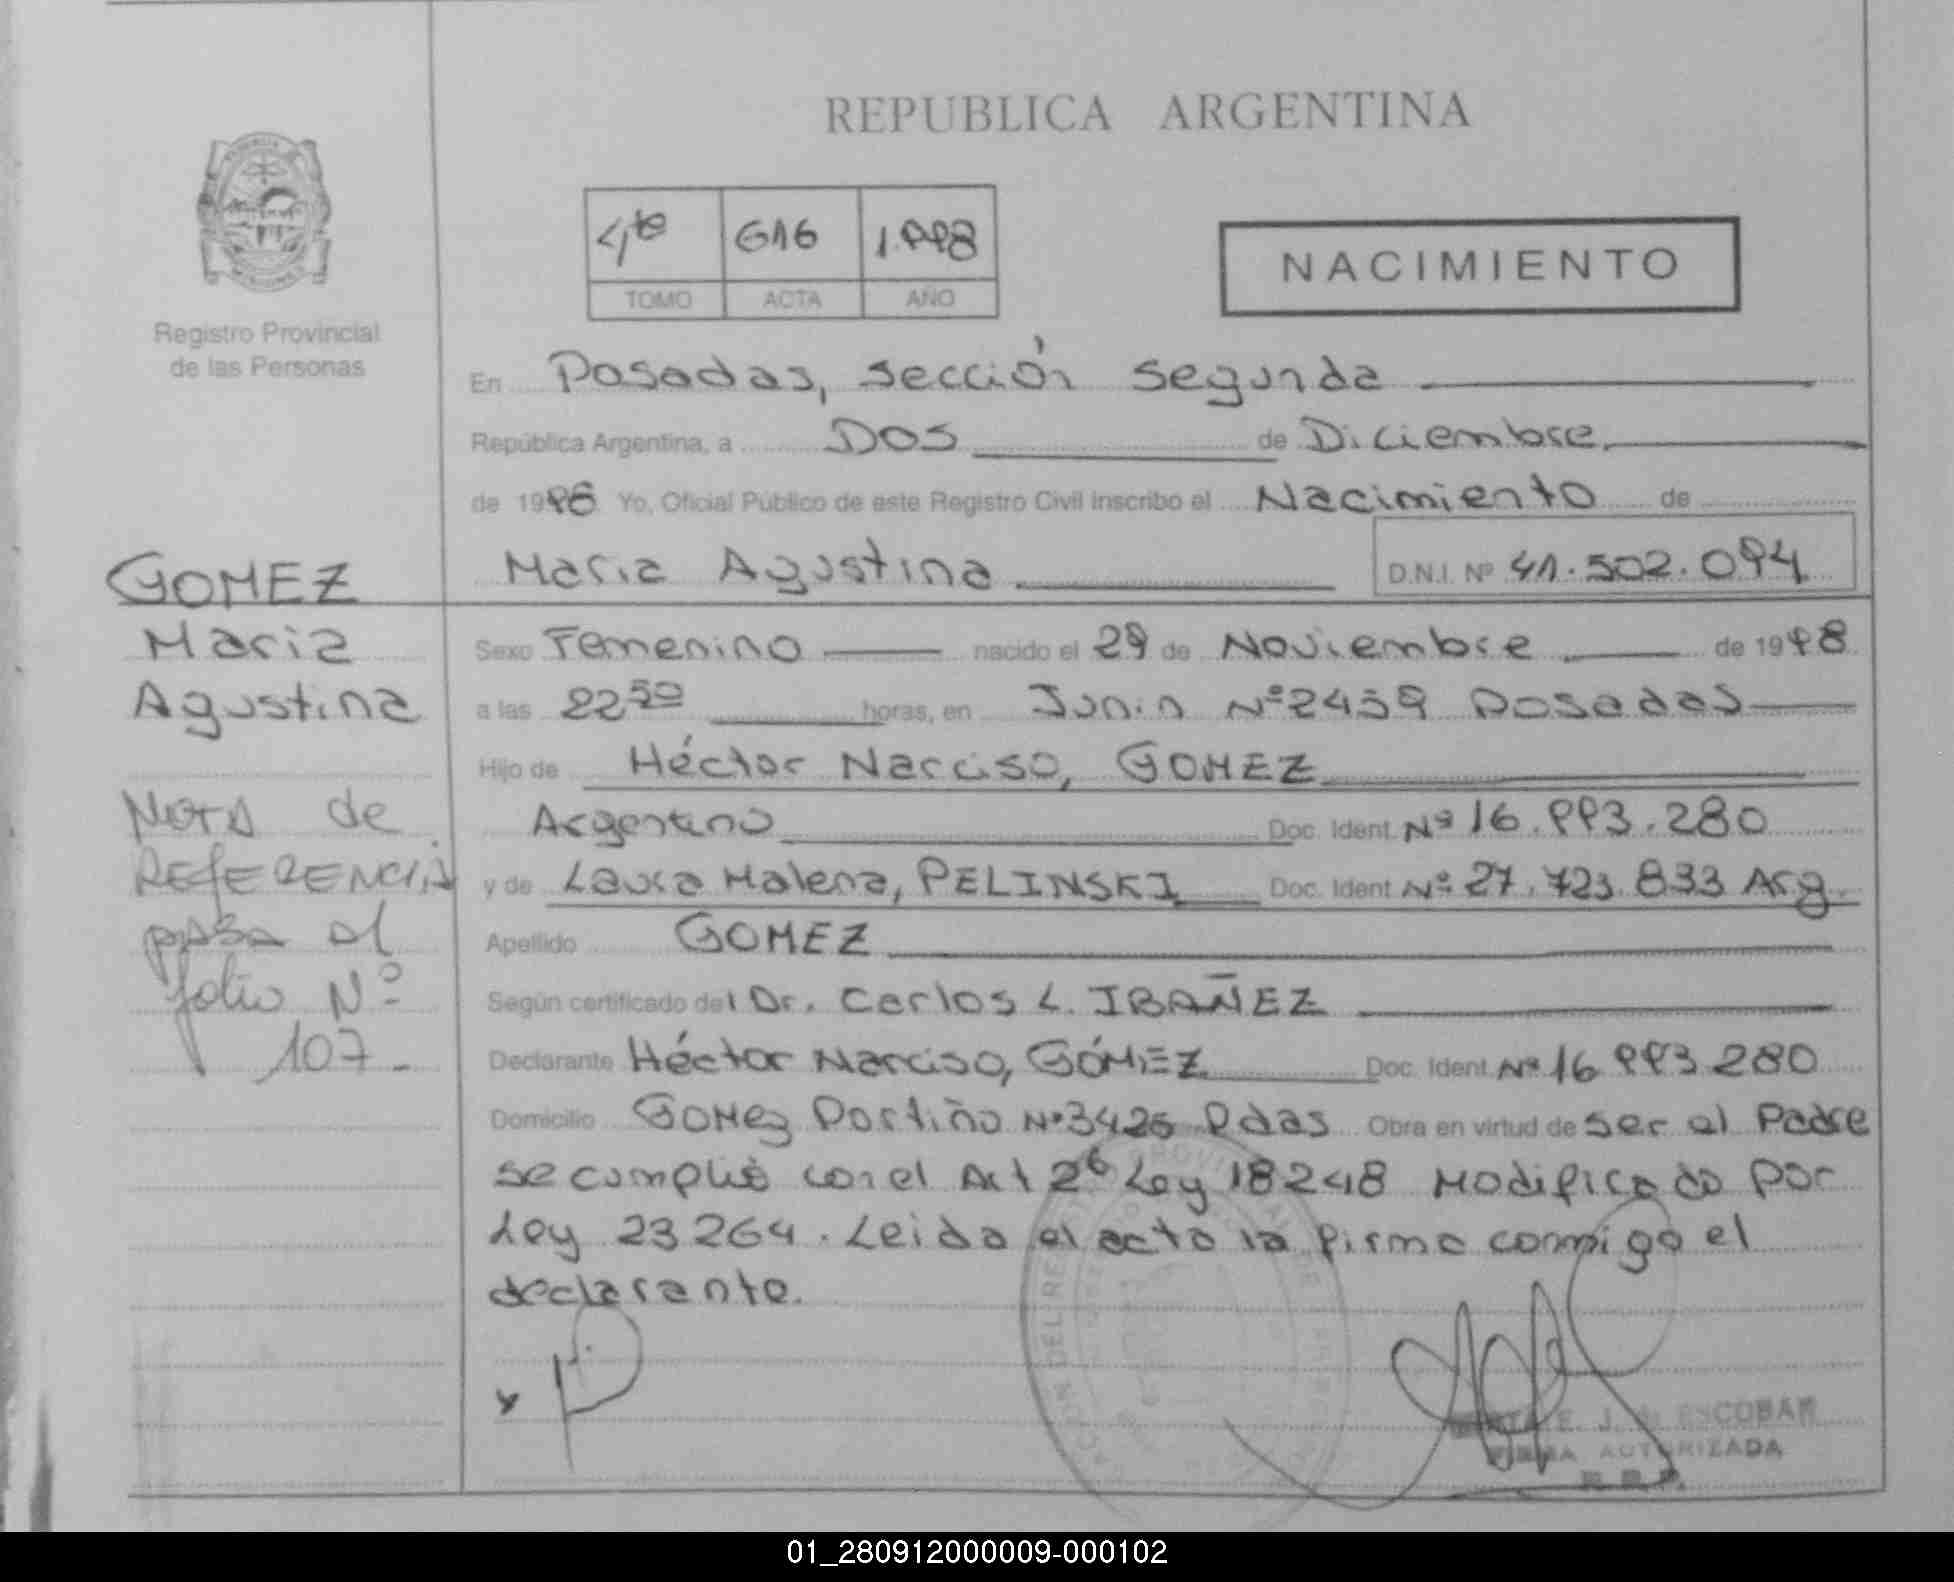 REPUBLICA ARGENTINA
4to 616 1.998
TOMO ACTA AÑO
NACIMIENTO
Registro Provincial
de las Personas
En Posadas, sección segunda
República Argentina, a DOS de Diciembre.
de 1998 Yo, Oficial Público de este Registro Civil Inscribo el Nacimiento de
Maria Agustina D.N.I. Nº 41.502.094
GOMEZ
Maria
Agustina
Nota de
REFERENCIA
pasa al
folio Nº
107-
Sexo Femenino nacido el 29 de Noviembre de 1998
a las 22 50 horas, en Junin Nº2459 Posadas
Hijo de Héctor Narciso, GOMEZ
Argentino Doc. Ident. Nº 16.993.280
y de Laura Malena, PELINSKI Doc. Ident. Nº 27.723.833 Arg.
Apellido GOMEZ
Según certificado del Dr. Carlos L. IBAÑEZ
Declarante Héctor Narciso, GÓMEZ Doc. Ident. Nº 16 993 280
Domicilio GOMez Portiño Nº3426 Pdas Obra en virtud de ser el Padre
se cumplió con el Art 2º Ley 18248 Modificado por
Ley 23264. Leida el acta la firma conmigo el
declarante.
E. J. ESCOBAR
FIRMA AUTORIZADA
R. P. P.
01_280912000009-000102